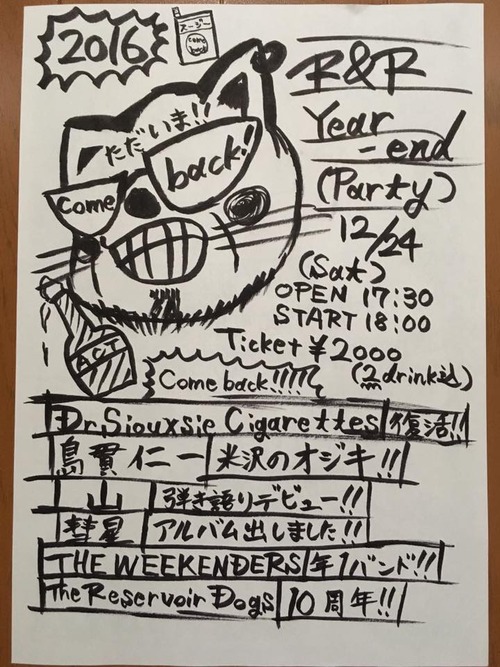 2016
スージー
come back
ただいま!!
come
back!
R&R
Year
-end
(Party)
12/24
(Sat)
OPEN 17:30
START 18:00
Ticket ¥2000
(2drink込)
ACT
Come back!!!!!
Dr,Siouxsie Cigarettes 復活!!
鳥貫仁一 米沢のオジキ!!
山 弾き語りデビュー!!
彗星 アルバム出しました!!
THE WEEKENDERS 年1バンド!!
The Reservoir Dogs 10周年!!